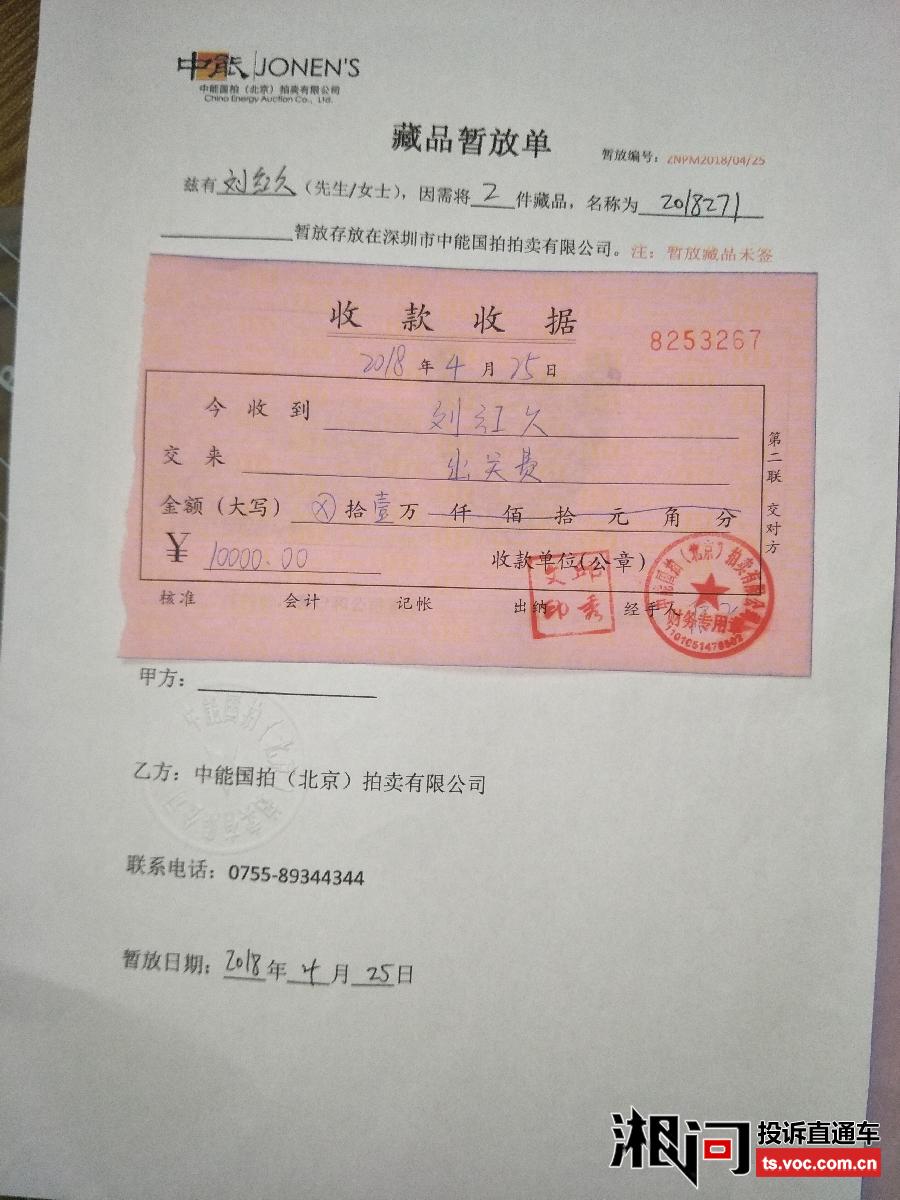 中能 JONEN'S
中能国拍（北京）拍卖有限公司
China Energy Auction Co., Ltd.
藏品暂放单
暂放编号：ZNPM2018/04/25
兹有刘红久（先生/女士），因需将2件藏品，名称为2018271
暂放存放在深圳市中能国拍拍卖有限公司。注：暂放藏品未签
收款收据
8253267
2018年4月25日
今收到 刘红久
交来 出关费
金额（大写）⊗拾壹万仟佰拾元角分
¥ 10000.00 收款单位(公章)
第二联 交对方
核准 会计 记帐 出纳 经手人
中能国拍（北京）拍卖有限公司
财务专用章
甲方：
乙方：中能国拍（北京）拍卖有限公司
联系电话：0755-89344344
暂放日期：2018年4月25日
湘问 投诉直通车
ts.voc.com.cn